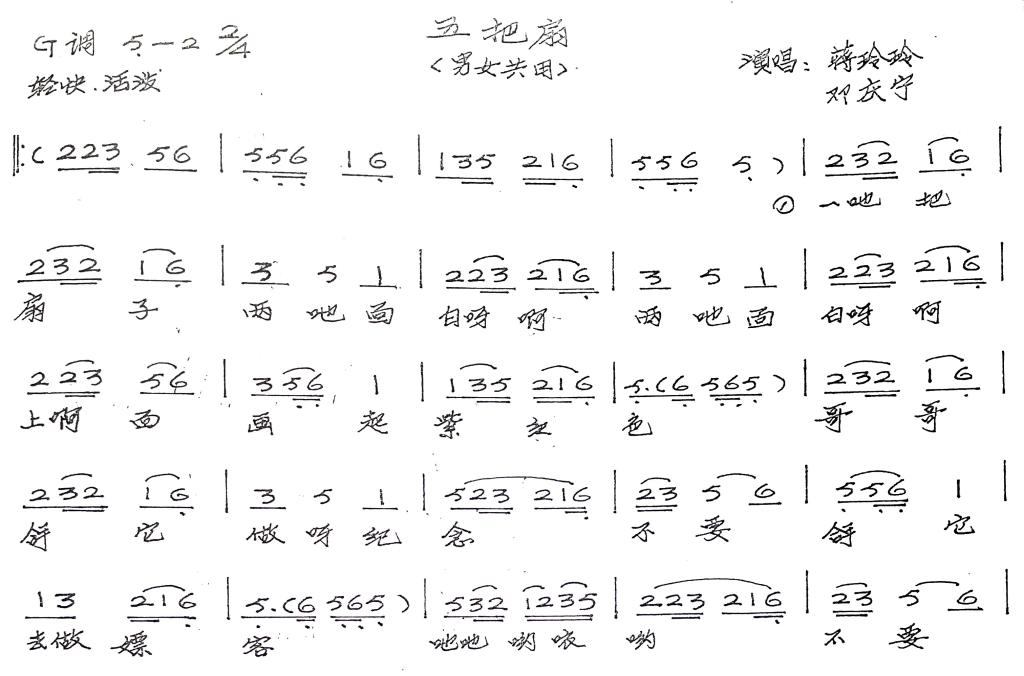 五把扇
G调 5—2 2/4
<男女共用>
演唱: 蒋玲玲
轻快.活泼
邓庆宁
‖:( 223 56 | 556 16 | 135 216 | 556 5 ) | 232 16 |
① 一吔 把
232 16 | 3 5 1 | 223 216 | 3 5 1 | 223 216 |
扇 子 两 吔 面 白呀 啊 两 吔 面 白呀 啊
223 56 | 356 1 | 135 216 | 5.(6 565) | 232 16 |
上啊 面 画 起 紫 红 色 哥 哥
232 16 | 3 5 1 | 523 216 | 23 5 6 | 556 1 |
它 做 呀 纪 念 不 要 它
13 216 | 5.(6 565) | 532 1235 | 223 216 | 23 5 6
去做 嫖 客 吔吔 哟 哝 哟 不 要